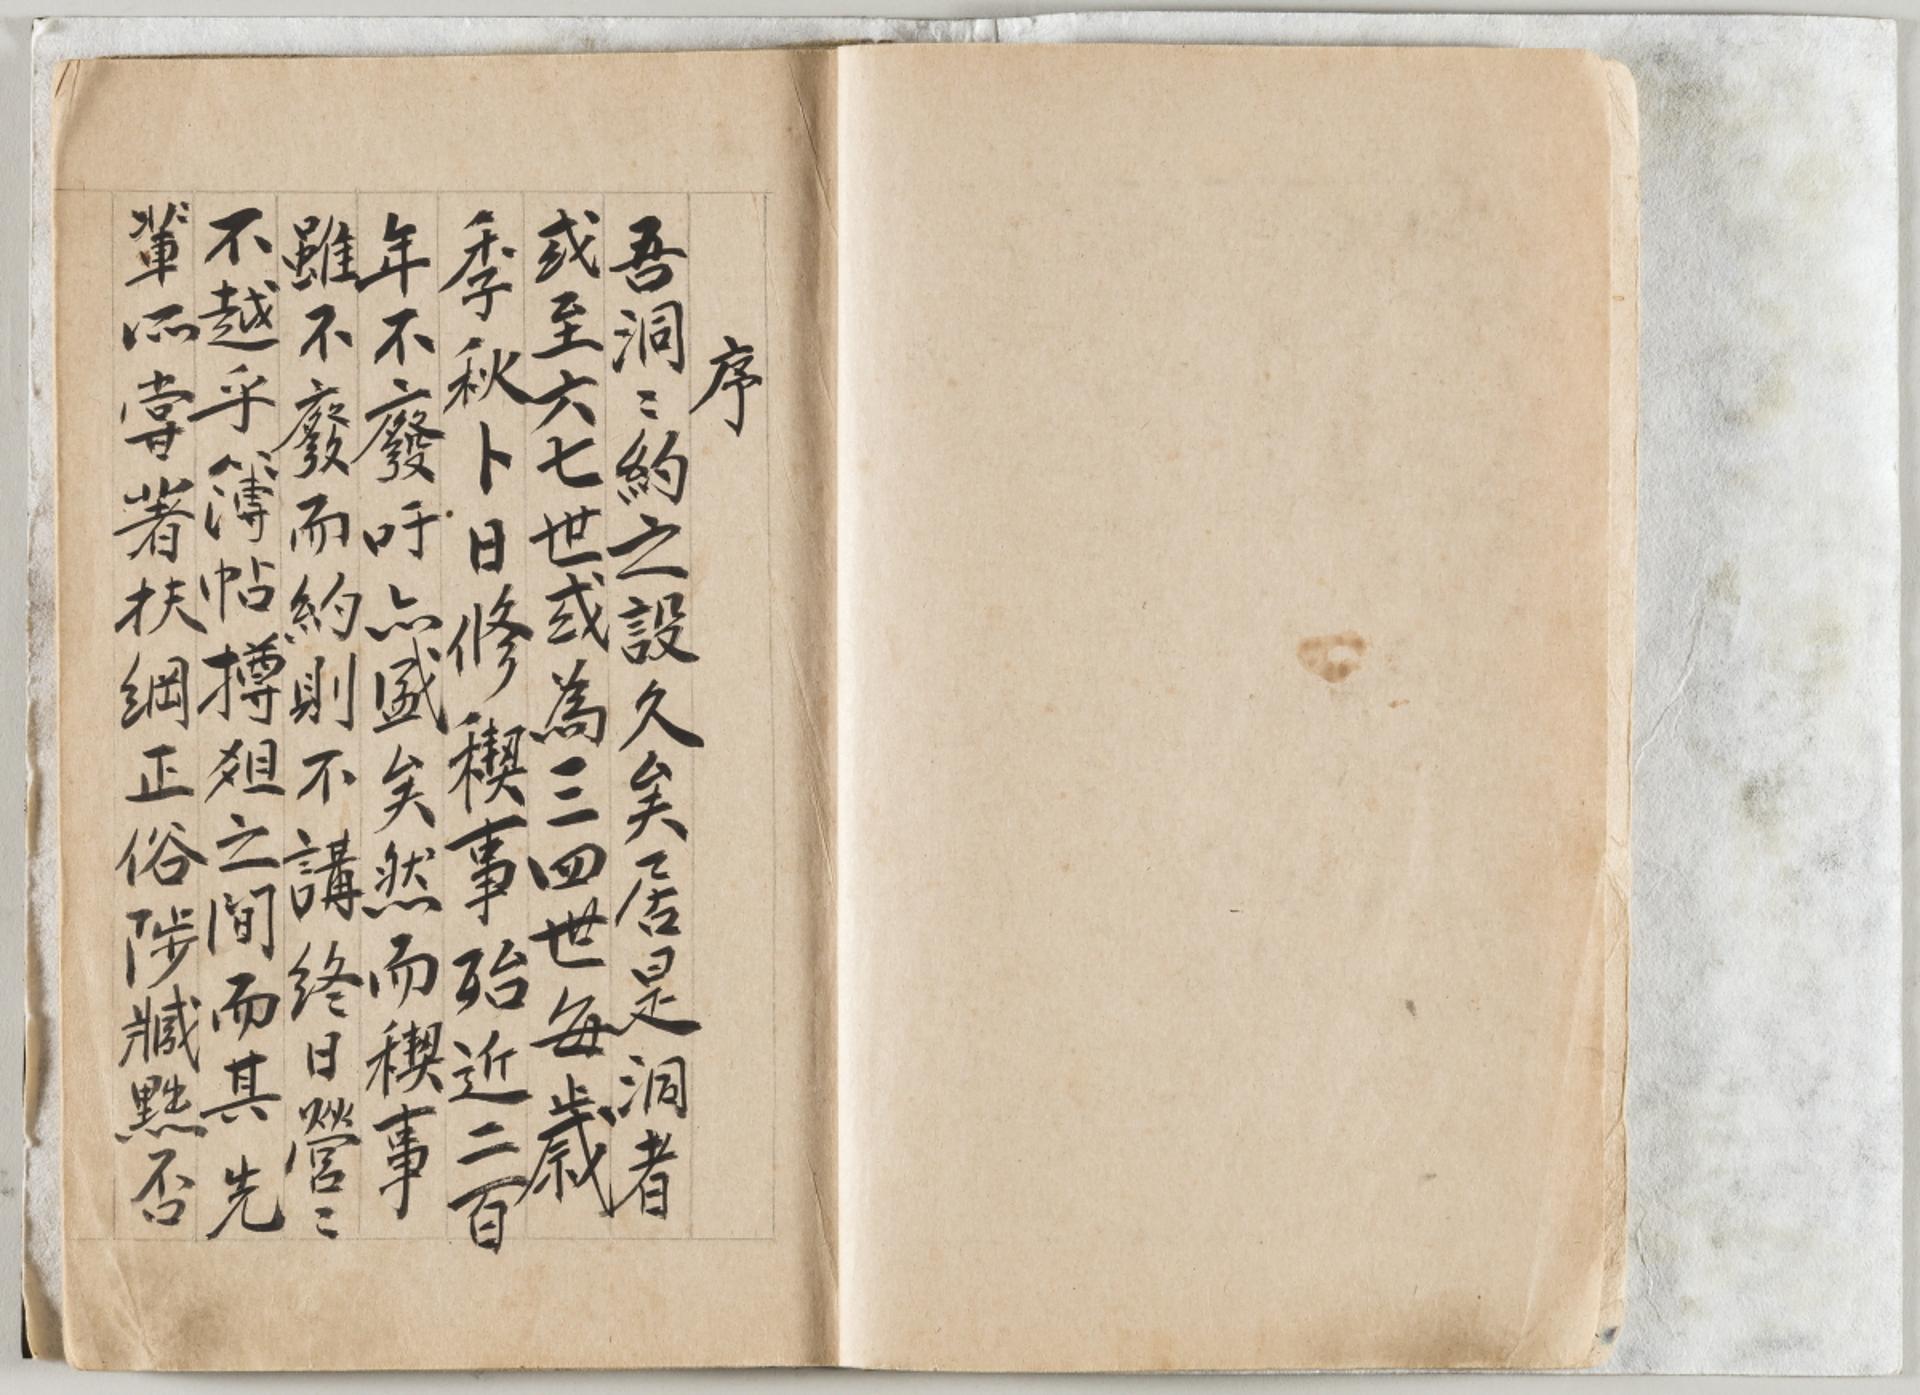 序
吾洞〻約之設久矣居是洞者
或至六七世或為三四世每歲
季秋卜日修稧事殆近二百
年不廢吁亦盛矣然而稧事
雖不廢而約則不講終日營〻
不越乎簿帖撙爼之間而其先
輩所嘗著扶綱正俗陟臧黜否